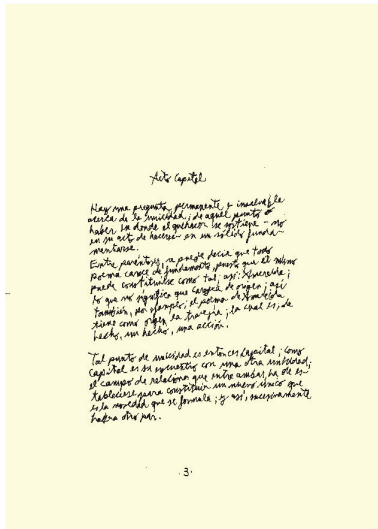 Acto Capital
Hay una pregunta, permanente e insolvable
acerca de la unicidad; de aquel punto o
haber en donde el quehacer se sostiene - no
en su acto de hacerse - en un sólido funda-
mentarse.
Entre paréntesis, se puede decir que todo
poema carece de fundamento, puesto que él mismo
puede constituirse como tal; así: Amereida;
lo que no significa que carezca de origen; así
también, por ejemplo; el poema de Amereida
tiene como origen la travesía; la cual es, de
hecho, un hecho, una acción.
Tal punto de unicidad es entonces capital; como
capital es su encuentro con una otra unicidad;
el campo de relaciones que entre ambas, ha de es-
tablecerse para constituir un nuevo único que
es la novedad que se formula; y así, sucesivamente
hasta otro par.
.3.